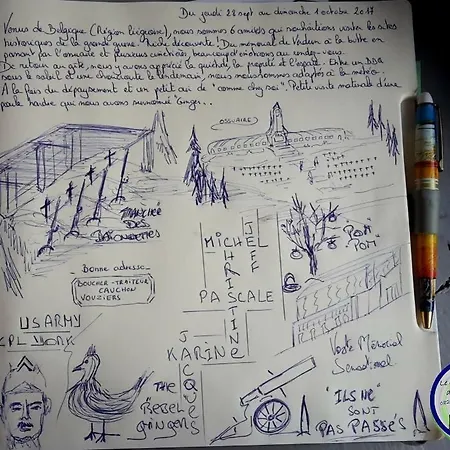 Du jeudi 28 sept au dimanche 1 octobre 2017
Venus de Belgique (Région liégeoise), nous sommes 6 amis qui souhaitions visiter les sites
historiques de la grande guerre. Belle découverte! Du mémorial de Verdun à la butte en
passant par l'ossuaire et plusieurs cimetières, beaucoup d'émotions au rendez-vous.
De retour au gîte, nous y avons apprécié la quiétude, la propreté et l'espace. Entre un BBQ
sous le soleil et une choucroute le lendemain, nous nous sommes adaptés à la météo.
A la fois du dépaysement et un petit air de "comme chez soi". Petite visite matinale d'une
poule hardie que nous avons surnommé "Ginger"...
OSSUAIRE
TRANCHÉE
DES
BAÏONNETTES
JEFF
MICHEL
CHRISTINE
PASCALE
KARINE
JACQUES
POM
POM
Bonne adresse
BOUCHER-TRAITEUR
CAUCHON
VOUZIERS
US ARMY
CPL YORK
THE
REBEL
GINGERS
Visite Mémorial
Sensationnel
"ILS NE
SONT
PAS PASSÉS